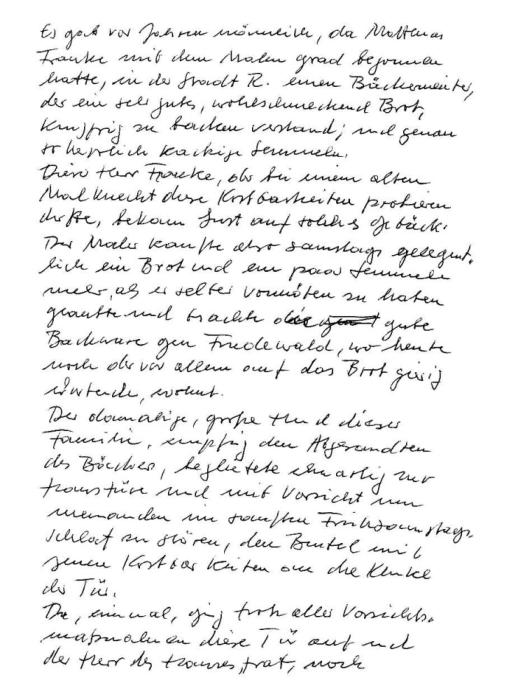 Es gab vor Jahren nämlich, da Matthias
Franke mit dem Malen grad begonnen
hatte, in der Stadt R. einen Bäckermeister,
der ein sehr gutes, wohlschmeckend Brot,
knusprig zu backen verstand; und genau
so herrlich knackige Semmeln.
Dieser Herr Francke, der bei einem alten
Malknecht diese Kostbarkeiten probieren
durfte, bekam Lust auf solches Gebäck.
Der Maler kaufte also samstags gelegent-
lich ein Brot und ein paar Semmeln
mehr, als er selber vonnöten zu haben
glaubte und brachte die gute
Backware gen Friedewald, wo heute
noch der vor allem auf das Brot gierig
wartende, wohnt.
Der damalige, große Hund dieser
Familie, empfing den Abgesandten
des Bäckers, begleitete ihn artig zur
Haustüre und mit Vorsicht um
niemanden im sanften Frühsamstags-
schlaf zu stören, den Beutel mit
jenen Kostbarkeiten an die Klinke
der Tür.
Da, einmal, ging trotz aller Vorsichts-
maßnahmen diese Tür auf und
der Herr des Hauses, trat, noch